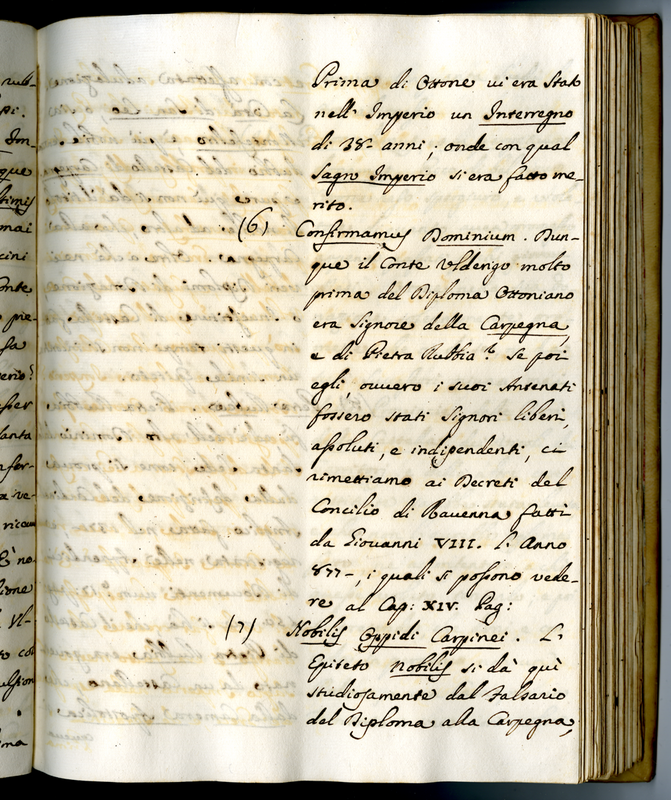 Prima di Ottone vi era Stato
nell' Imperio un Interregno
di 38 anni; onde con qual
Sagro Imperio si era fatto me-
rito.
(6) Confirmamus Dominium. Dun-
que il Conte Ulderigo molto
prima del Diploma Ottoniano
era Signore della Carpegna,
e di Pietra Rubbia. Se poi
egli, ovvero i suoi Antenati
fossero stati Signori liberi,
assoluti, e indipendenti, ci
rimettiamo ai Decreti del
Concilio di Ravenna fatti
da Giovanni VIII. l'Anno
877, i quali si possono vede-
re al Cap: XIV. Pag:
(7) Nobilis Oppidi Carpinei. L'
Epiteto Nobilis si dà quì
studiosamente dal Falsario
del Diploma alla Carpegna,